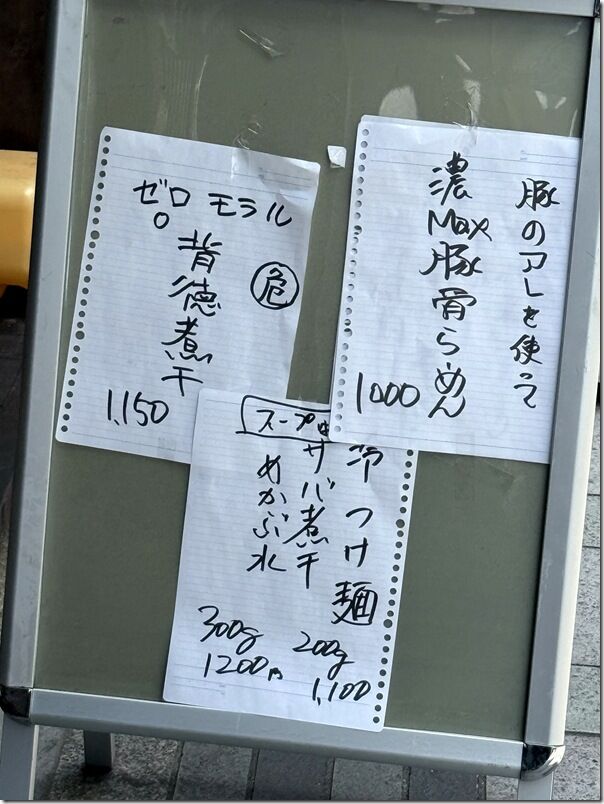 豚のアレを使って
濃Max豚骨らーめん
1000
ゼロモラル
0
危
背徳煮干
1,150
冷つけ麺
スープは
サバ煮干
めかぶ水
200g
1,100
300g
1200円